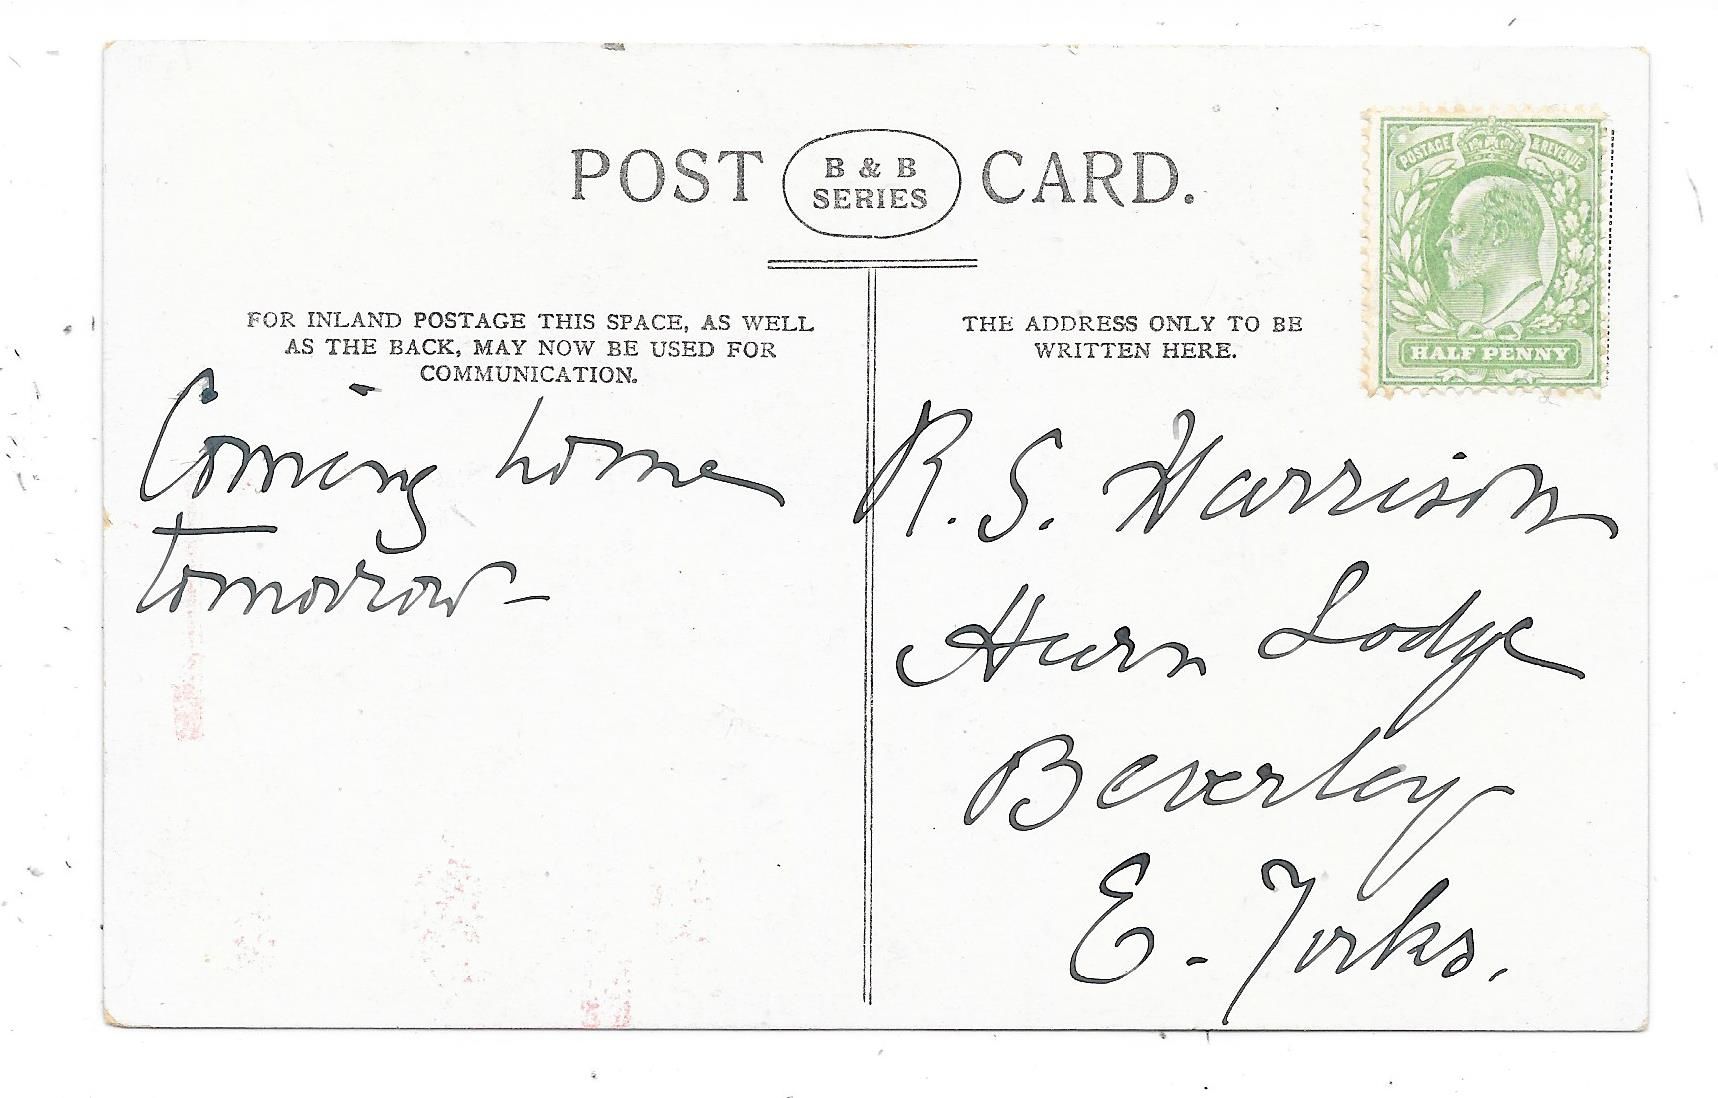 POST CARD.
B & B
SERIES
POSTAGE & REVENUE
HALF PENNY
FOR INLAND POSTAGE THIS SPACE, AS WELL
AS THE BACK, MAY NOW BE USED FOR
COMMUNICATION.
THE ADDRESS ONLY TO BE
WRITTEN HERE.
Coming home
tomorrow –
R. S. Harrison
Hurn Lodge
Beverley
E. Yorks.